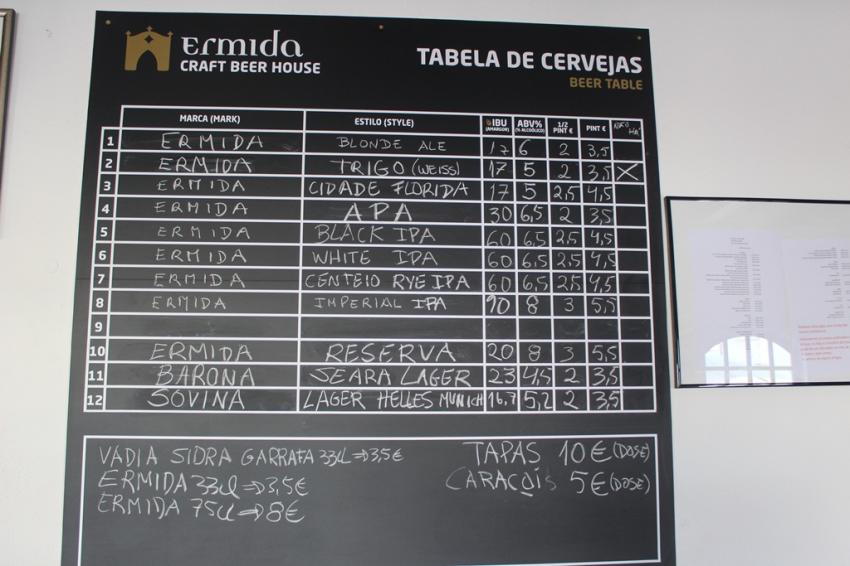 ermida
CRAFT BEER HOUSE
TABELA DE CERVEJAS
BEER TABLE
MARCA (MARK) ESTILO (STYLE) IBU (AMARGOR) ABV% (% ALCOÓLICO) 1/2 PINT € PINT € NÃO HÁ
1 ERMIDA BLONDE ALE 17 6 2 3,5
2 ERMIDA TRIGO (WEISS) 17 5 2 3,5 X
3 ERMIDA CIDADE FLORIDA 17 5 2,5 4,5
4 ERMIDA APA 30 6,5 2 3,5
5 ERMIDA BLACK IPA 60 6,5 2,5 4,5
6 ERMIDA WHITE IPA 60 6,5 2,5 4,5
7 ERMIDA CENTEIO RYE IPA 60 6,5 2,5 4,5
8 ERMIDA IMPERIAL IPA 90 8 3 5,5
9
10 ERMIDA RESERVA 20 8 3 5,5
11 BARONA SEARA LAGER 23 4,5 2 3,5
12 SOVINA LAGER HELLES MUNICH 16,7 5,2 2 3,5
VADIA SIDRA GARRAFA 33CL ⇒ 3,5€
ERMIDA 33cl ⇒ 3,5€
ERMIDA 75cl ⇒ 8€
TAPAS 10€ (DOSE)
CARACÓIS 5€ (DOSE)